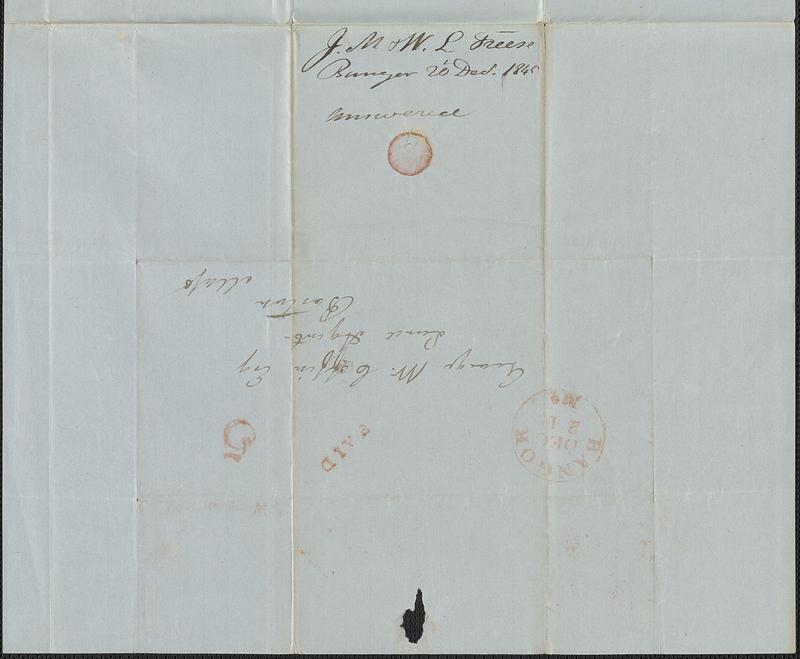 J. M & W. L Treese
Bangor 20 Dec. 1845
Answered
George W. Coffin Esq
Land Agent
Boston Mass
5
PAID
BANGOR
Me.
DEC
21